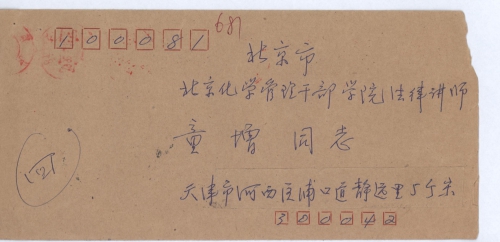 100081
681
北京市
北京化学管理干部学院法律讲师
童增同志
(四)
天津市河西区浦口道静远里5个宋
300042